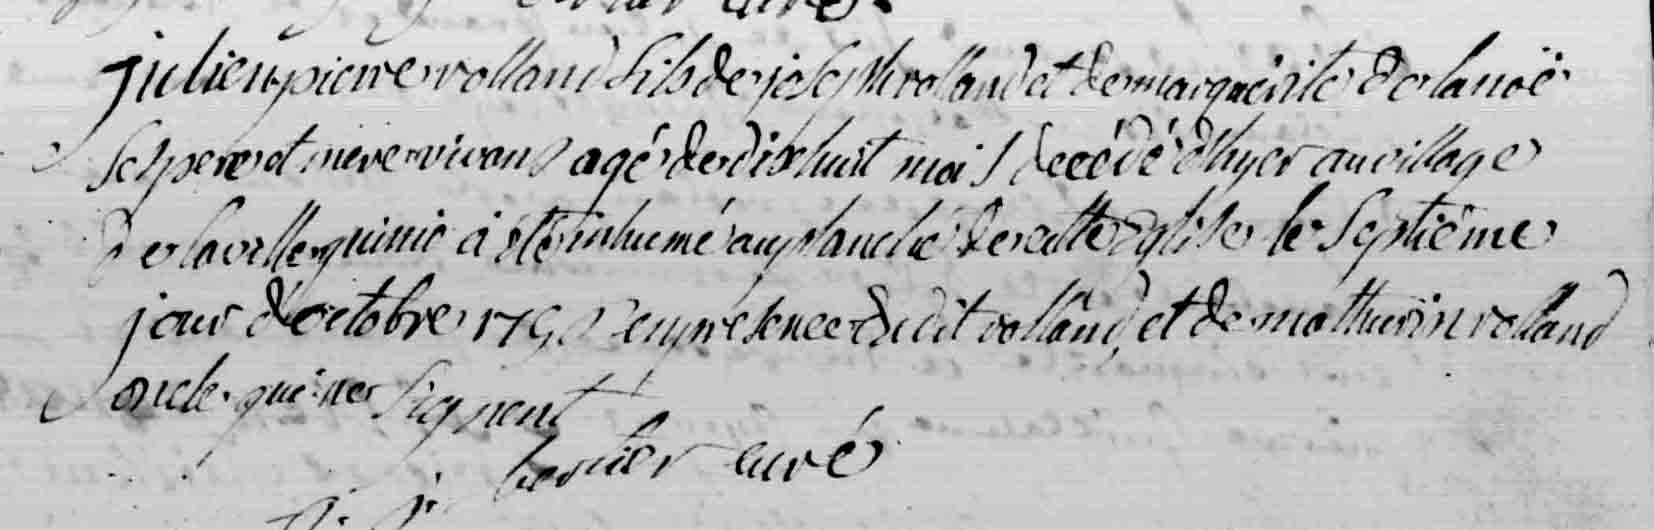 curé.
julien pierre rolland fils de joseph rolland et de marguérite de la noë
ses pere et mere vivans agé de dix huit mois décédé d'hyer au village
de la ville quinio a été inhumé au planché de cette église le septiéme
jour d'octobre en présence dudit rolland, et de mathurin rolland
oncle qui ne signent
curé